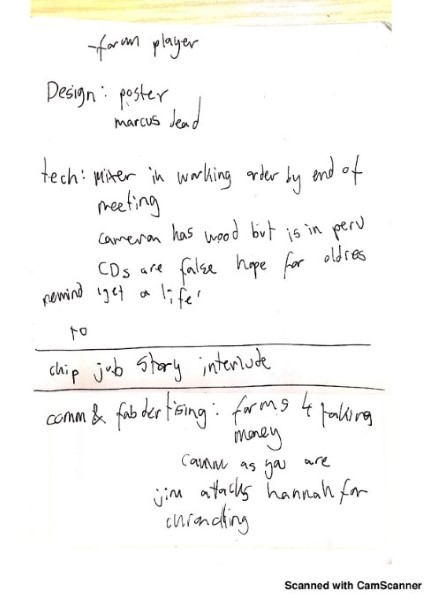 -forum player
Design: poster
marcus dead
tech: mixer in working order by end of
meeting
cameron has wood but is in peru
CDs are false hope for oldies
remind 'get a life'
to
chip job story interlude
comm & fabdertising: forms 4 taking
money
comm as you are
jim attacks hannah for
Scanned with CamScanner